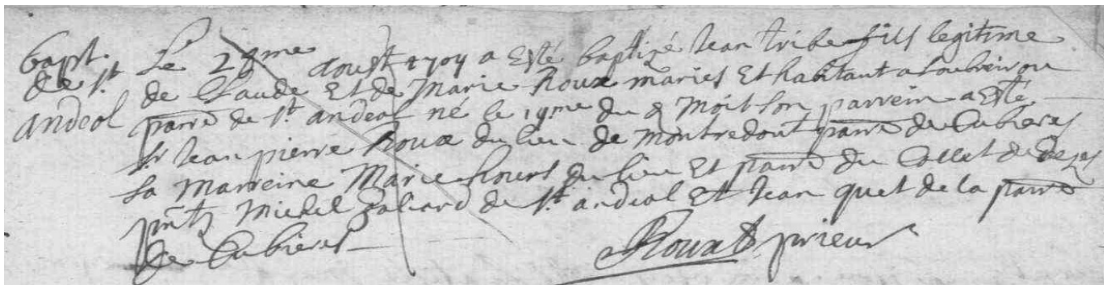 bapt. Le 28me aoust 1704 a Esté baptizé Jean tribe fils legitime
de St de Claude Et de Marie Roux mariés Et habitant a Loubreirou
andeol parre de St andeol né le 19me du d mois son parrein a Esté
Sr Jean pierre Roux du lieu de montredont parre de Cubieres
La marreine Marie hours du lieu Et parre du Collet de dezes
pnts Michel galiard de St andeol Et Jean quet de la parre
de Cubieres Roux prieur